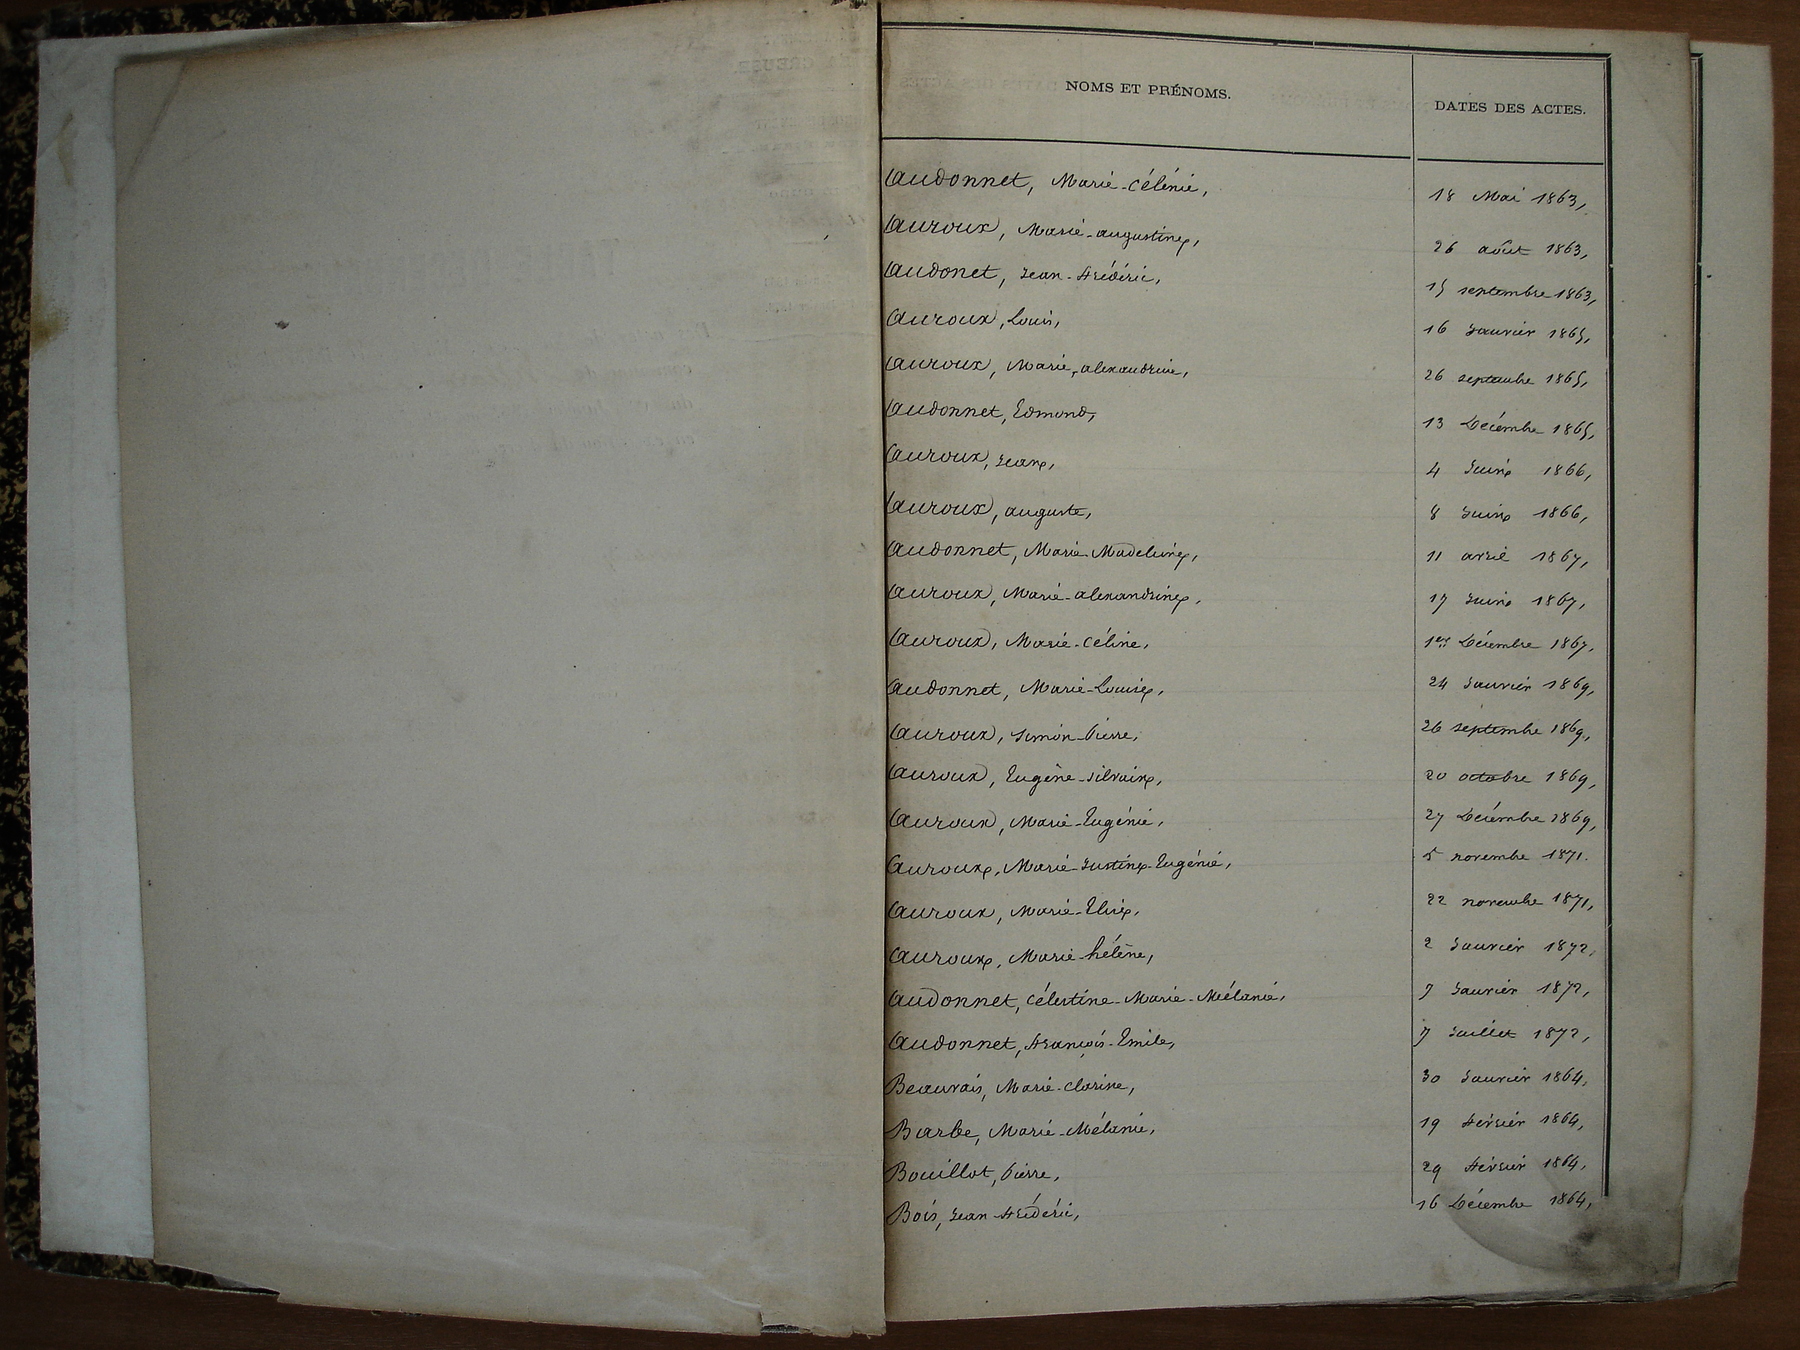 NOMS ET PRÉNOMS. DATES DES ACTES.
Audonnet, Marie-Célénie, 18 Mai 1863,
Auroux, Marie-augustine, 26 août 1863,
Audonet, Jean-Frédéric, 15 septembre 1863,
Auroux, Louis, 16 Janvier 1865,
Auroux, Marie, alexandrine, 26 septembre 1865,
Audonnet, Edmond, 13 Décembre 1865,
Auroux, Jean, 4 Juin 1866,
Auroux, auguste, 8 Juin 1866,
Audonnet, Marie-Madeleine, 11 avril 1867,
Auroux, Marie-alexandrine, 17 Juin 1867,
Auroux, Marie-Céline, 1er Décembre 1867,
Audonnet, Marie-Louise, 24 Janvier 1869,
Auroux, Simon-Pierre, 26 septembre 1869,
Auroux, Eugène-silvain, 20 octobre 1869,
Auroux, Marie-Eugénie, 27 Décembre 1869,
Auroux, Marie-Justine-Eugénie, 5 novembre 1871.
Auroux, Marie-Elise, 22 novembre 1871,
Auroux, Marie-hélène, 2 Janvier 1872,
Audonnet, Célestine-Marie-Mélanie, 7 Janvier 1872,
Audonnet, François-Emile, 7 Juillet 1872,
Beauvais, Marie-Clarine, 30 Janvier 1864,
Barbe, Marie-Mélanie, 19 Février 1864,
Bouillot, Pierre, 29 Février 1864,
Bois, Jean-Frédéric, 16 Décembre 1864,